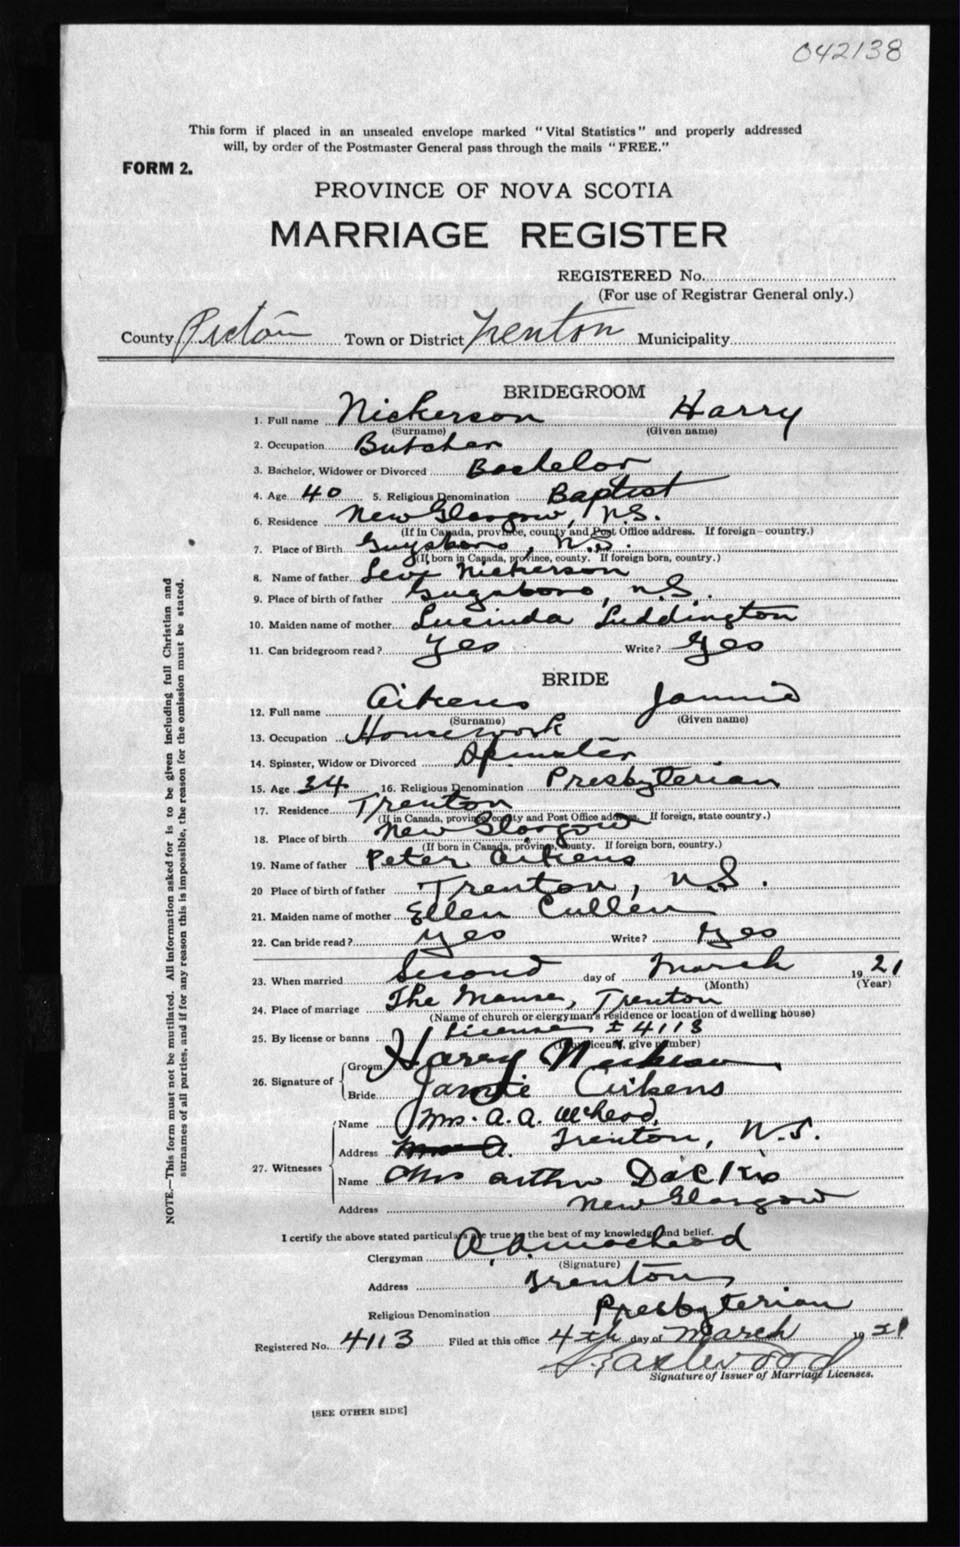 042138
This form if placed in an unsealed envelope marked "Vital Statistics" and properly addressed
will, by order of the Postmaster General pass through the mails "FREE."
FORM 2.
PROVINCE OF NOVA SCOTIA
MARRIAGE REGISTER
REGISTERED No.
(For use of Registrar General only.)
County Pictou Town or District Trenton Municipality
BRIDEGROOM
1. Full name Nickerson Harry
(Surname) (Given name)
2. Occupation Butcher
3. Bachelor, Widower or Divorced Bachelor
4. Age 40 5. Religious Denomination Baptist
6. Residence New Glasgow, N.S.
(If in Canada, province, county and Post Office address. If foreign - country.)
7. Place of Birth Guysboro, N.S.
(If born in Canada, province, county. If foreign born, country.)
8. Name of father Levi Nickerson
9. Place of birth of father Guysboro, N.S.
10. Maiden name of mother Lucinda Luddington
11. Can bridegroom read? Yes Write? Yes
BRIDE
12. Full name Aikens
(Surname) (Given name)
13. Occupation Housework
14. Spinster, Widow or Divorced Spinster
15. Age 34 16. Religious Denomination Presbyterian
17. Residence Trenton
(If in Canada, province county and Post Office address. If foreign, state country.)
18. Place of birth New Glasgow
(If born in Canada, province, county. If foreign born, country.)
19. Name of father Peter Aikens
20 Place of birth of father Trenton, N.S.
21. Maiden name of mother Ellen Cullen
22. Can bride read? Yes Write? Yes
23. When married Second day of March 1921
(Month) (Year)
24. Place of marriage The Manse, Trenton
(Name of church or clergyman's residence or location of dwelling house)
25. By license or banns License
(If by license, give number)
26. Signature of Groom Harry Nickerson
Bride Aikens
27. Witnesses Name Mrs. A. A. McLeod
Address Trenton, N.S.
Name Mrs Arthur
Address New Glasgow
I certify the above stated particulars are true to the best of my knowledge and belief.
Clergyman A. A. Macleod
(Signature)
Address Trenton
Religious Denomination Presbyterian
Registered No. 4113 Filed at this office 4th day of March 1921
Signature of Issuer of Marriage Licenses.
[SEE OTHER SIDE]
NOTE.—This form must not be mutilated. All information asked for is to be given including full Christian and
surnames of all parties, and if for any reason this is impossible, the reason for the omission must be stated.